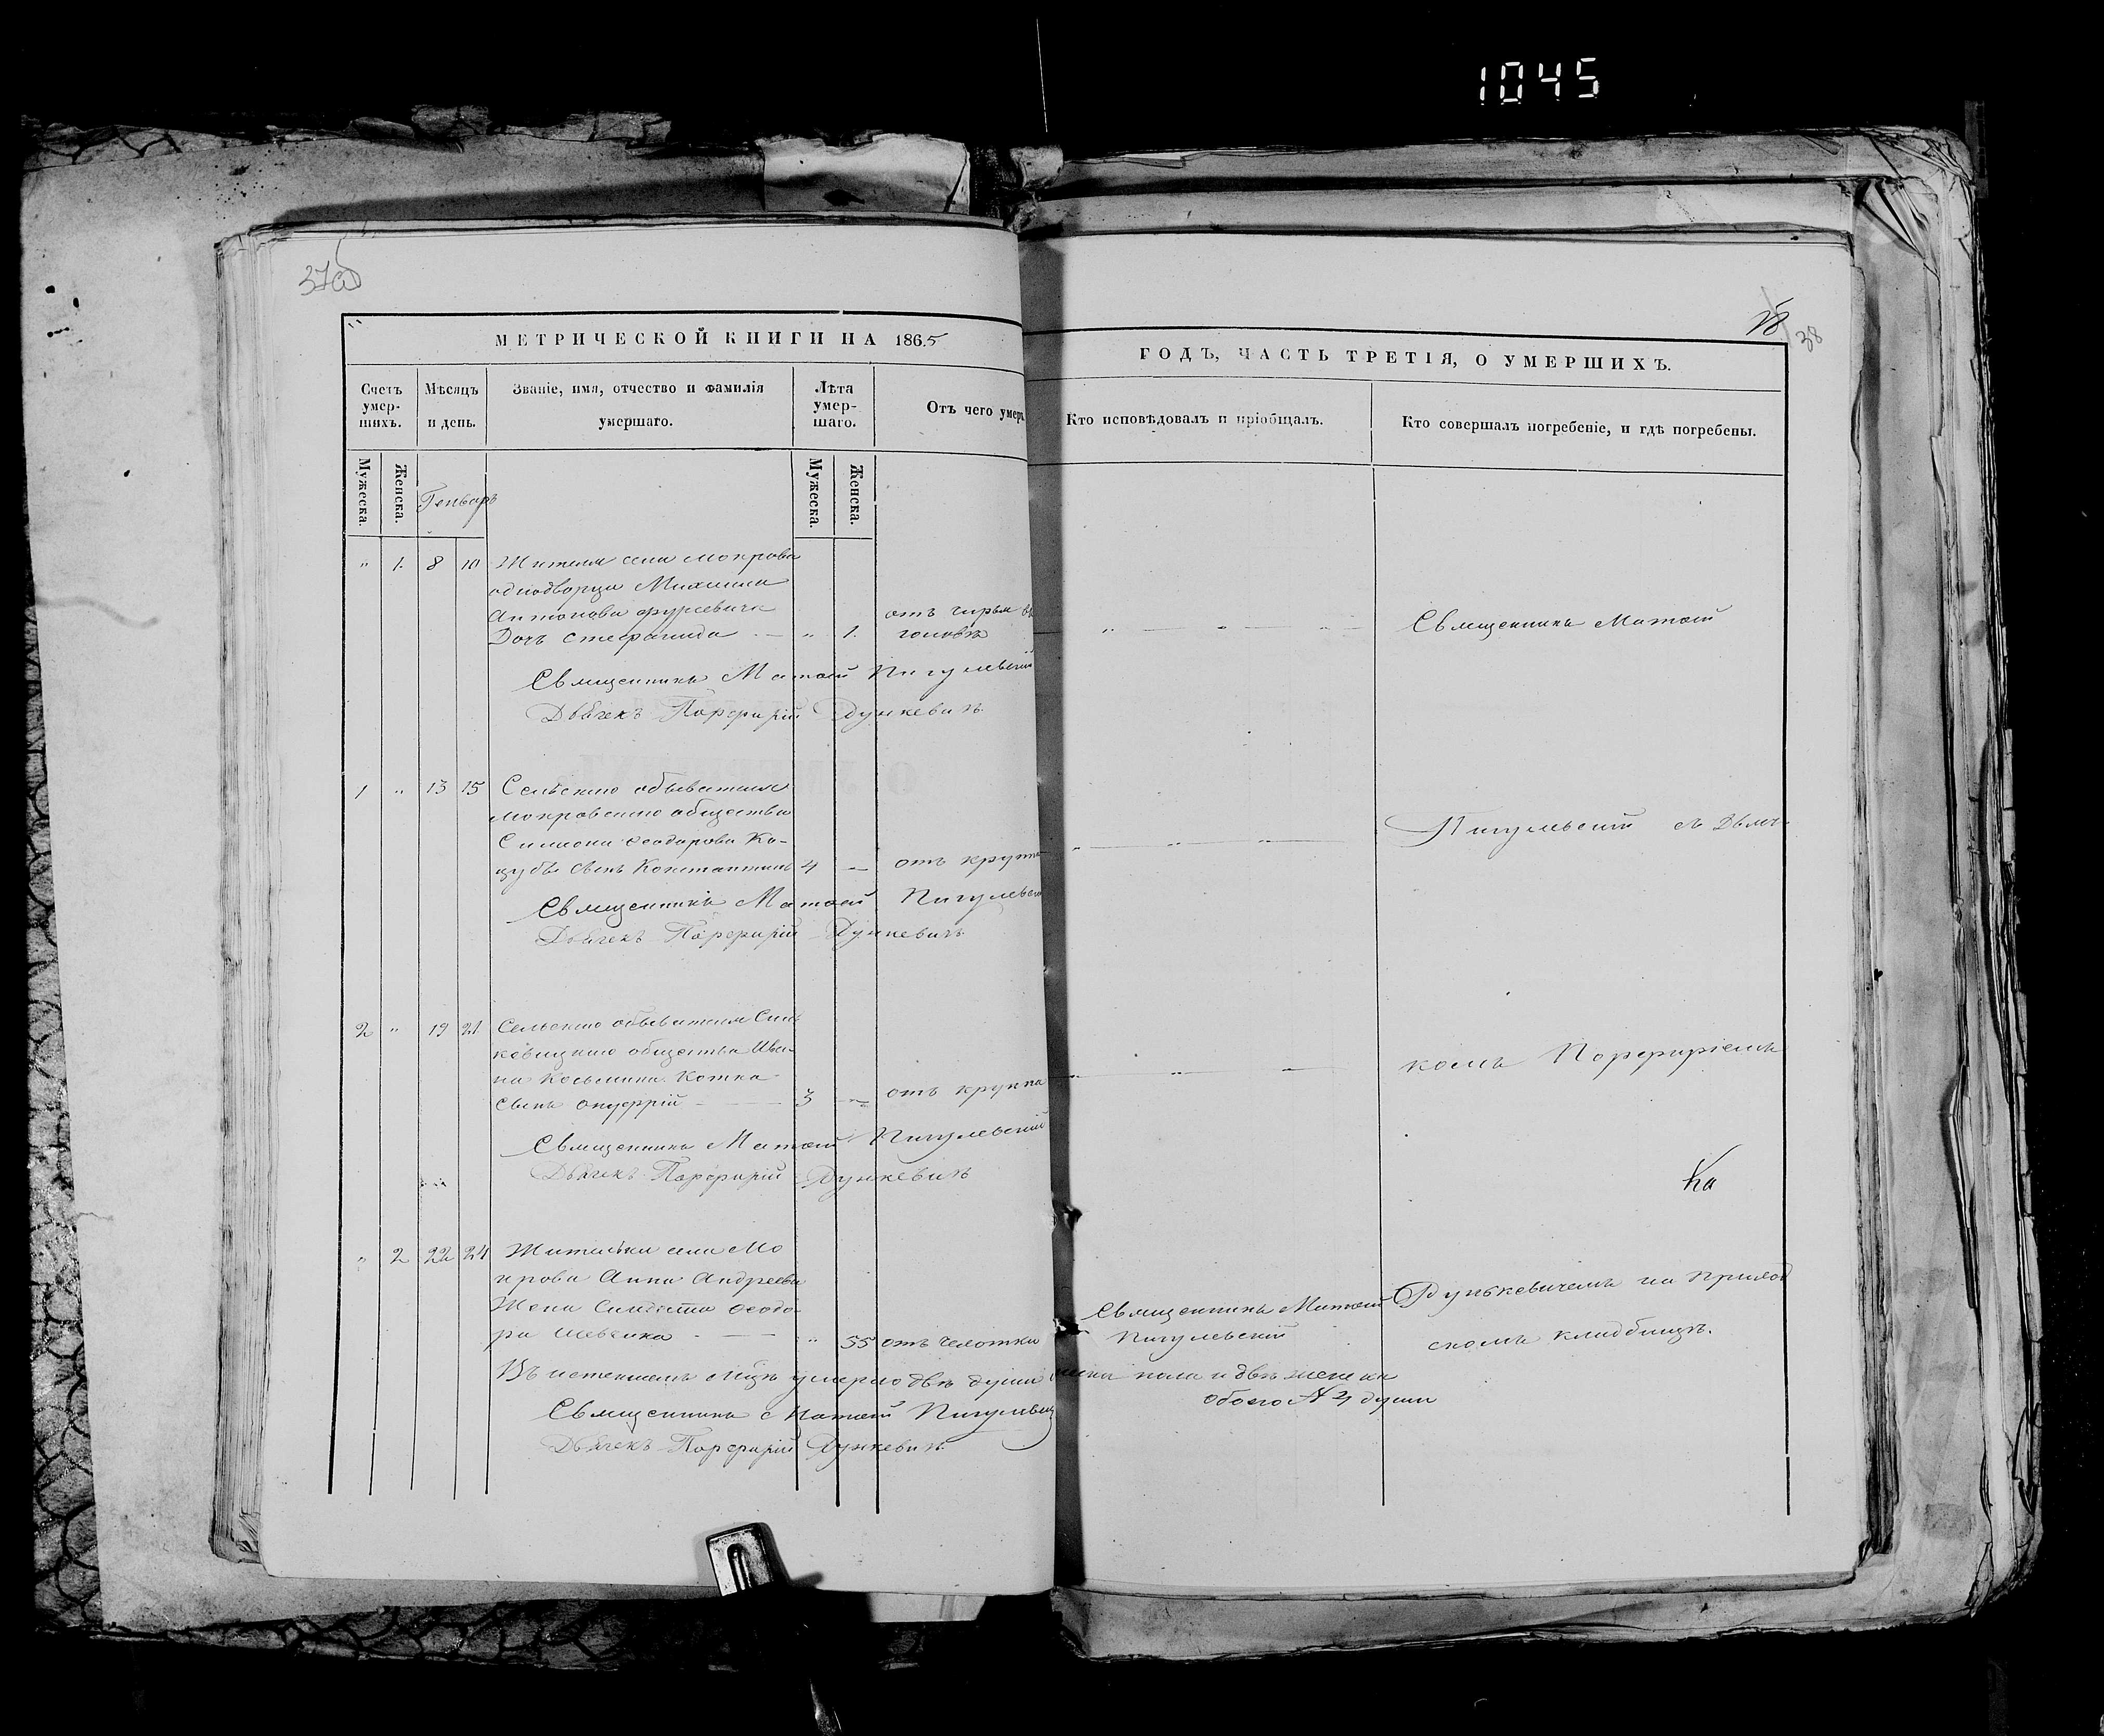 1045
37об
38
МЕТРИЧЕСКОЙ КНИГИ НА 1865
ГОДЪ, ЧАСТЬ ТРЕТІЯ, О УМЕРШИХЪ.
Счетъ умер-
шихъ.
Мѣсяцъ
и день.
Званіе, имя, отчество и фамилія
умершаго.
Лѣта
умер-
шаго.
Отъ чего умеръ
Кто исповѣдовалъ и пріобщалъ.
Кто совершалъ погребеніе, и гдѣ погребены.
Мужеска.
Женска.
Генварь
Мужеска.
Женска.
" 1. 8 10 Жителя села Мокрова
однодворца Михаила
Антонова
Дочь Стефанида — " 1.
отъ
головѣ
Священникъ Матѳей
Священникъ Матѳей Пигулевскій
Дьячекъ Порфирій Дункевичъ
1 " 13 15 Сельскаго обывателя
Мокровскаго общества
Симеона Ѳеодорова Ко-
цубы сынъ Константинъ 4 — отъ крупа
Пигулевскій съ Дьяч-
Священникъ Матѳей Пигулевскій
Дьячекъ Порфирій Дункевичъ
2 " 19 21 Сельскаго обывателя Син-
кевицкаго общества Ива-
на Козьмина Котка
сынъ Онуфрій — 3 — отъ крупа
комъ Порфиріемъ
Священникъ Матѳей Пигулевскій
Дьячекъ Порфирій Дункевичъ
" 2 22 24 Жителька села Мо
крова Анна Андреева
Жена Солдата Ѳеодо-
ра Шевчика — " 55 отъ чахотки
Священникъ Матѳей
Пигулевскій
Дунькевичемъ на приход
скомъ кладбищѣ.
Въ истекшемъ м-цѣ умерло двѣ души пола и двѣ женска
обоего 4 души
Священникъ Матѳей Пигулевскій
Дьячекъ Порфирій Дункевичъ